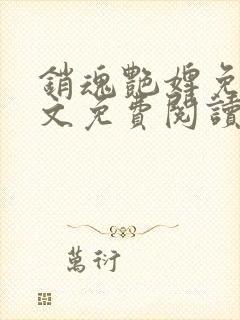 銷魂艷婢免
文免費閱讀
萬衍